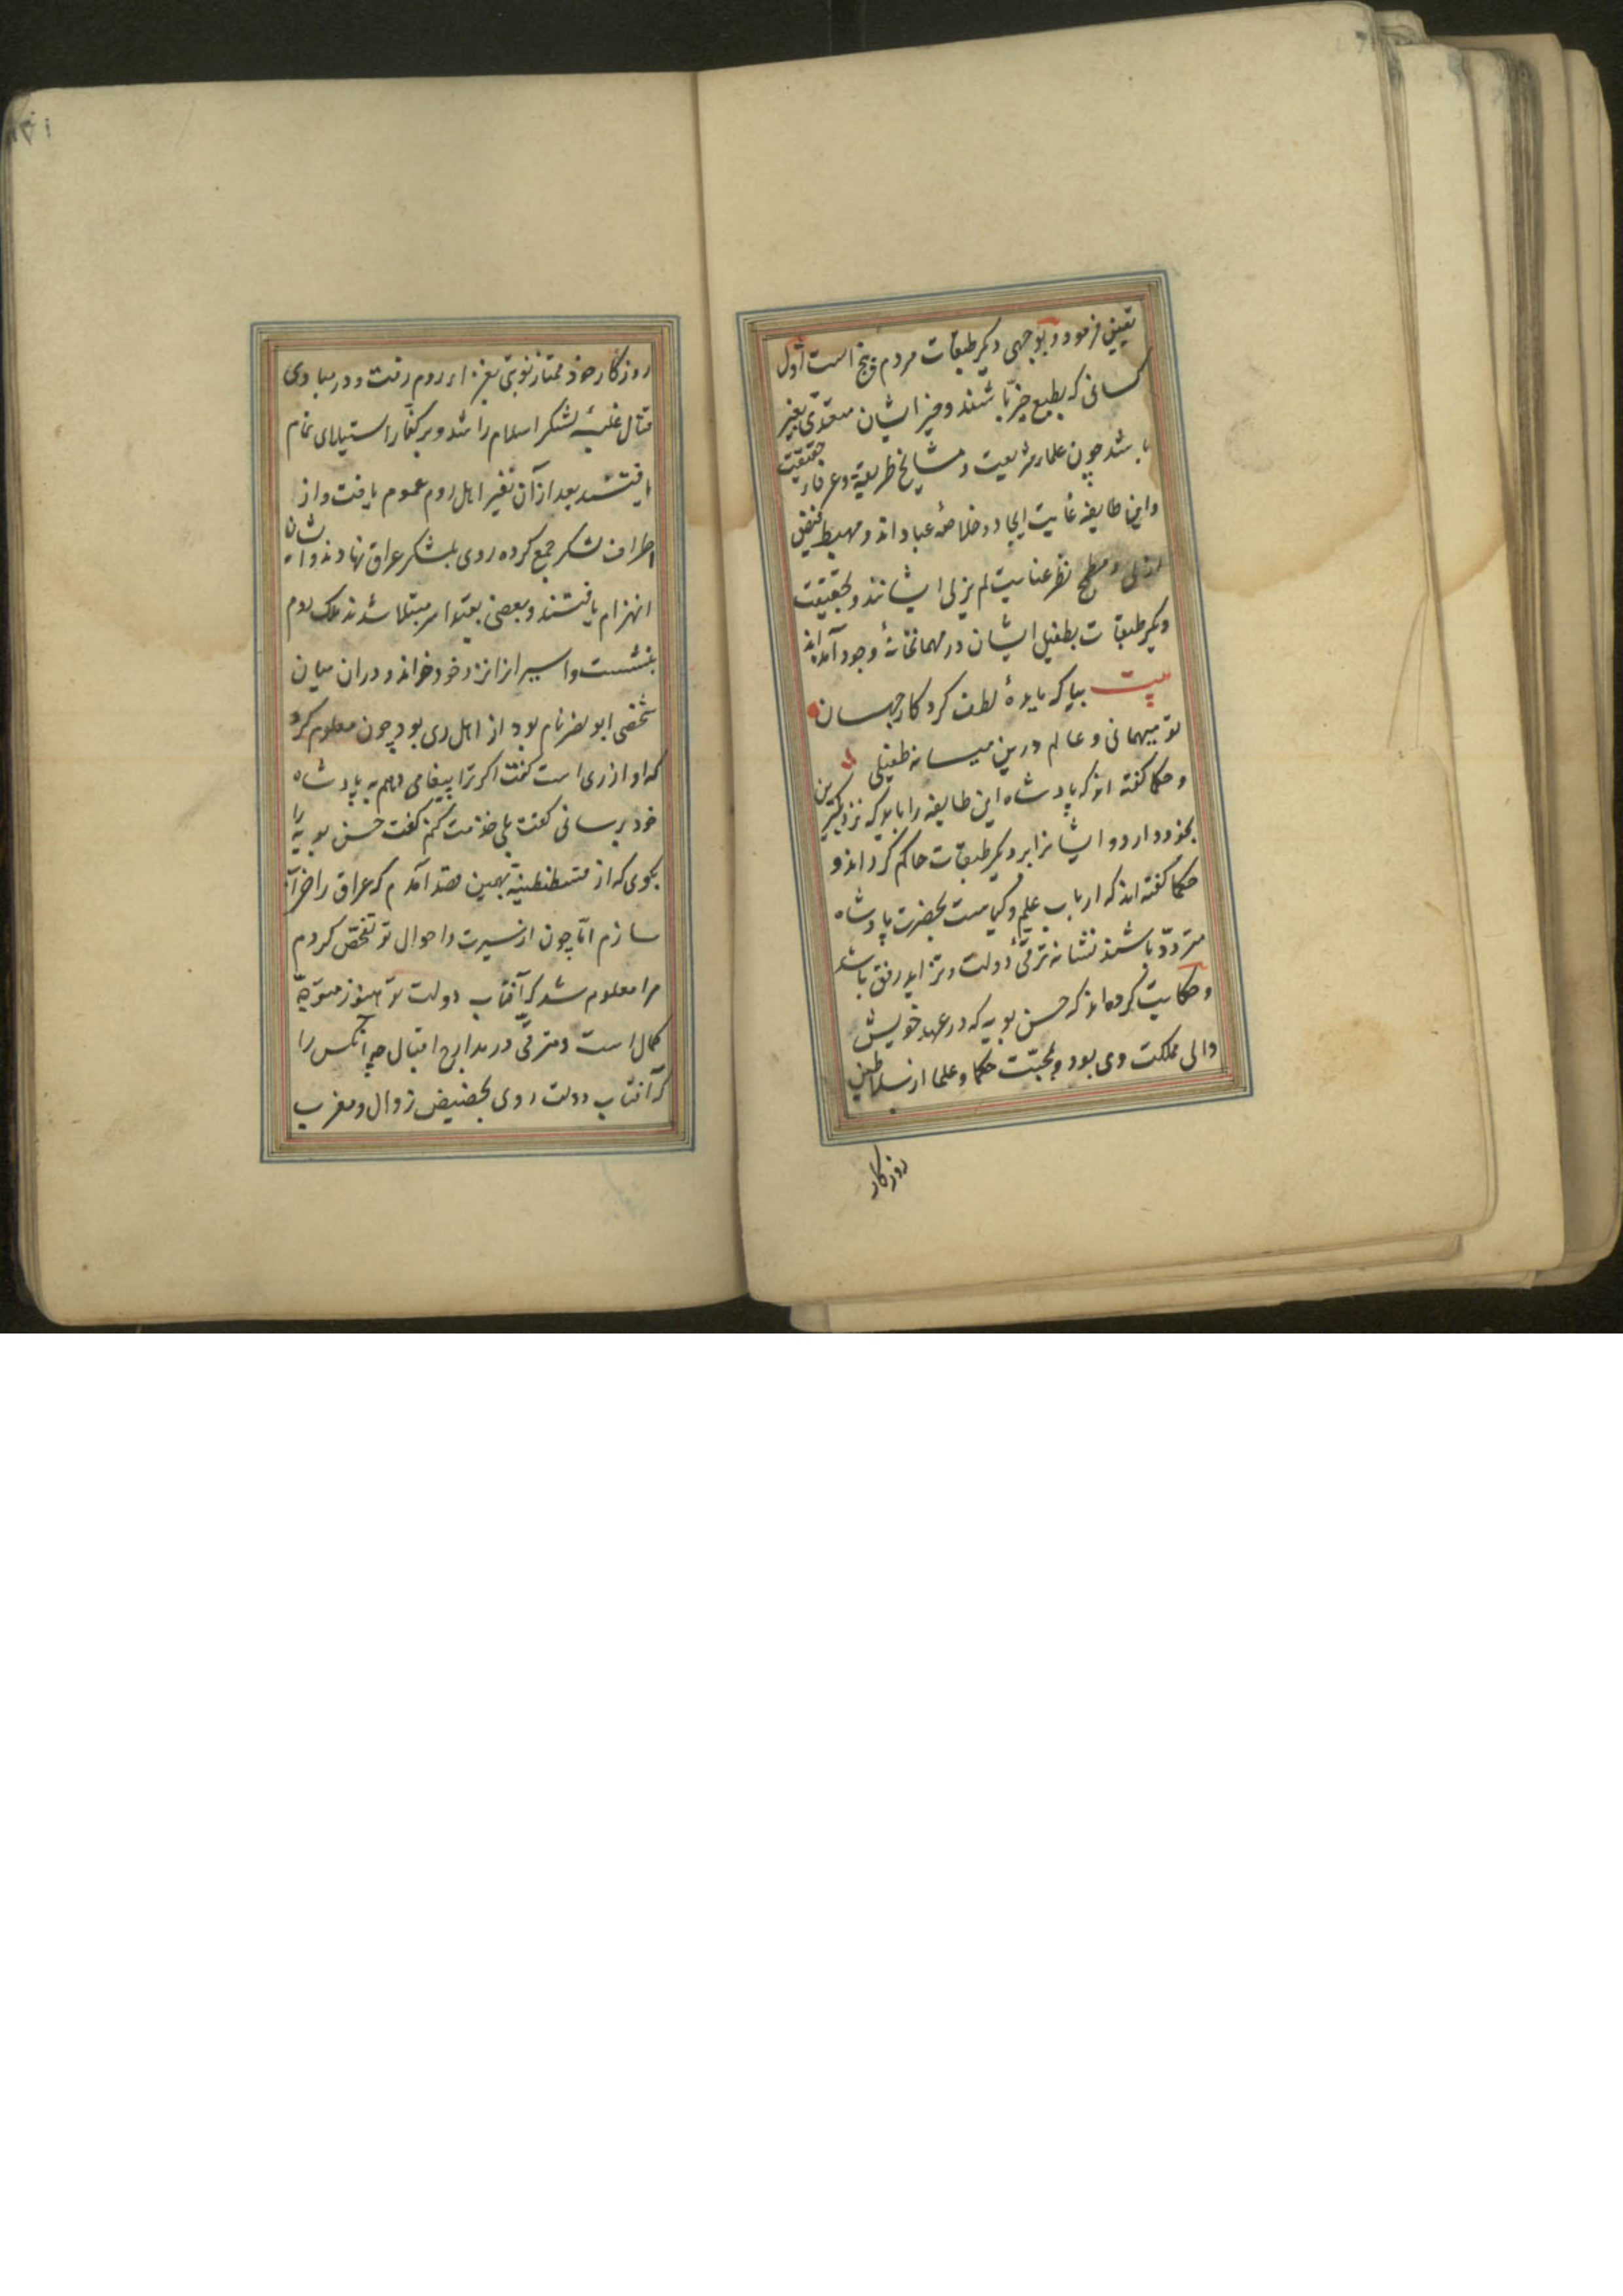 تعیین فرمود و بوجهی دیگر طبقات مردم پنج است اول
کسانی که بطبع خیّر باشند و خیر ایشان متعدّی بغیر
باشد چون علماء شریعت و مشایخ طریقة و عرفاء حقیقت
و این طایفه غایت ایجاد و خلاصهٔ عباد اند و مهبط فیض
ازلی و مطمح نظر عنایت لم یزلی ایشانند و بحقیقت
دیگر طبقات بطفیل ایشان در مهمانخانهٔ وجود آمده اند
بیت بیا که بایدهٔ لطف کردکار جهان
تو میهمانی و عالم درین میانه طفیلی
و حکما گفته اند که پادشاه این طایفه را باید که نزدیکترین
بخود دارد و ایشانرا بر دیگر طبقات حاکم گرداند و
حکما گفته اند که ارباب علم و کیاست بحضرت پادشاه
متردّد باشند نشانهٔ ترقّی دولت و تزاید رونق باشد
و حکایت کرده اند که حسن بویه که در عهد خویش
والی مملکت ری بود و بمحبّت حکما و علما از سلاطین
روزکار
روزگار خود ممتاز نوبتی بغزاء روم رفت و در مبادی
قتال غلبه لشکر اسلام را شد و بر کفّار استیلای تمام
یافتند بعد از آن نفیر اهل روم عموم یافت و از
اطراف لشکر جمع کرده روی بلشکر عراق نهادند و ایشان
انهزام یافتند و بعضی بقید اسر مبتلا شدند ملک روم
بنشست و اسیرانرا نزد خود خواند و در ان میان
شخصی ابو نصر نام بود از اهل ری بود چون معلوم کرد
که او از ری است گفت اگر ترا پیغامی دهم به پادشاه
خود برسانی گفت بلی خدمت کنم گفت حسن بویه را
بگوی که از قسطنطینیه بهمین قصد آمدم که عراق را خراب
سازم امّا چون از سیرت و احوال تو تفحّص کردم
مرا معلوم شد که آفتاب دولت تو هنوز متوجّه
کمال است و مترقّی در مدارج اقبال چه آنکس را
که آفتاب دولت روی بحضیض زوال و مغرب